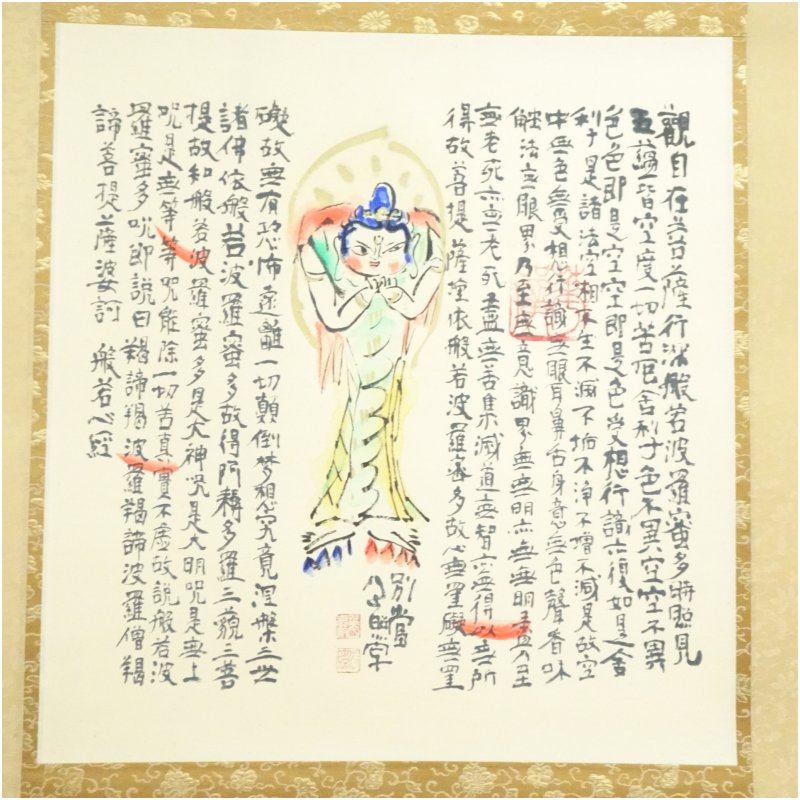 觀自在菩薩行深般若波羅蜜多時照見
五蘊皆空度一切苦厄舍利子色不異空空不異
色色即是空空即是色受想行識亦復如是舍
利子是諸法空相不生不滅不垢不浄不増不減是故空
中無色無受想行識無眼耳鼻舌身意無色聲香味
触法無眼界乃至無意識界無無明亦無無明盡乃至
無老死亦無老死盡無苦集滅道無智亦無得以無所
得故菩提薩埵依般若波羅蜜多故心無罣礙無罣
礙故無有恐怖遠離一切顛倒夢想究竟涅槃三世
諸佛依般若波羅蜜多故得阿耨多羅三藐三菩
提故知般若波羅蜜多是大神咒是大明咒是無上
咒是無等等咒能除一切苦真實不虚故説般若波
羅蜜多咒即説曰羯諦羯波羅羯諦波羅僧羯
諦菩提薩婆訶 般若心經
別當